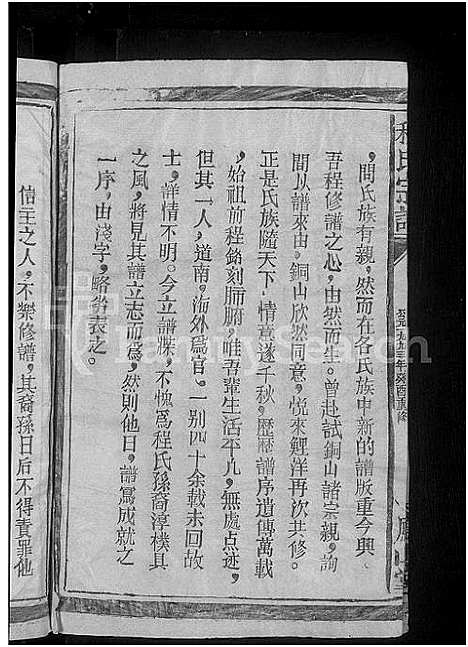 程氏宗譜
公元一九九三年癸酉重修
，間氏族有親，然而在各氏族中新的譜版重今興、
吾程修譜之心，由然而生。曾赴試銅山諸宗親，詢
問以譜來由。銅山欣然同意，悦來鯉洋再次共修。
正是氏族隨天下，情意遂千秋，歷歷譜序遺傳萬載
，始祖前程銘刻肺腑，唯吾輩生活平凡，無處点迹，
但其一人，道南，海外為官。一別四十余載未回故
土，詳情不明。今立譜牒，不愧爲程氏孫裔淳樸其
之風，將見其譜立志而爲，然則他日，譜寫成就之
一序，由淺字，略畧表之。
信主之人，不樂修譜，其裔孫日后不得責罪他
FamilySearch